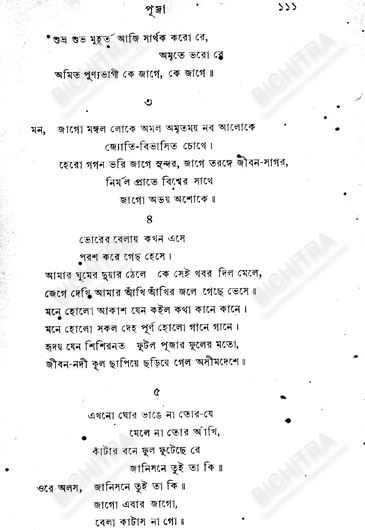 পূজা ১১১
শুভ্র শুভ মুহূর্ত আজি সার্থক করো রে,
অমৃতে ভরো রে
অমিত পুণ্যভাগী কে জাগে, কে জাগে॥
৩
মন, জাগো মঙ্গল লোকে অমল অমৃতময় নব আলোকে
জ্যোতি-বিভাসিত চোখে।
হেরো গগন ভরি জাগে সুন্দর, জাগে তরঙ্গে জীবন-সাগর,
নির্মল প্রাতে বিশ্বের সাথে
জাগো অভয় অশোকে॥
৪
ভোরের বেলায় কখন এসে
পরশ করে গেছ হেসে।
আমার ঘুমের দুয়ার ঠেলে কে সেই খবর দিল মেলে,
জেগে দেখি আমার আঁখি আঁখির জলে গেছে ভেসে॥
মনে হোলো আকাশ যেন কইল কথা কানে কানে।
মনে হোলো সকল দেহ পূর্ণ হোলো গানে গানে।
হৃদয় যেন শিশিরনত ফুটল পূজার ফুলের মতো,
জীবন-নদী কূল ছাপিয়ে ছড়িয়ে গেল অসীমদেশে॥
৫
এখনো ঘোর ভাঙে না তোর-যে
মেলে না তোর আঁখি,
কাঁটার বনে ফুল ফুটেছে রে
জানিসনে তুই তা কি॥
ওরে অলস, জানিসনে তুই তা কি॥
জাগো এবার জাগো,
বেলা কাটাস না গো॥
BICHITRA
BICHITRA
BICHITRA
BICHITRA
BICHITRA
BICHITRA